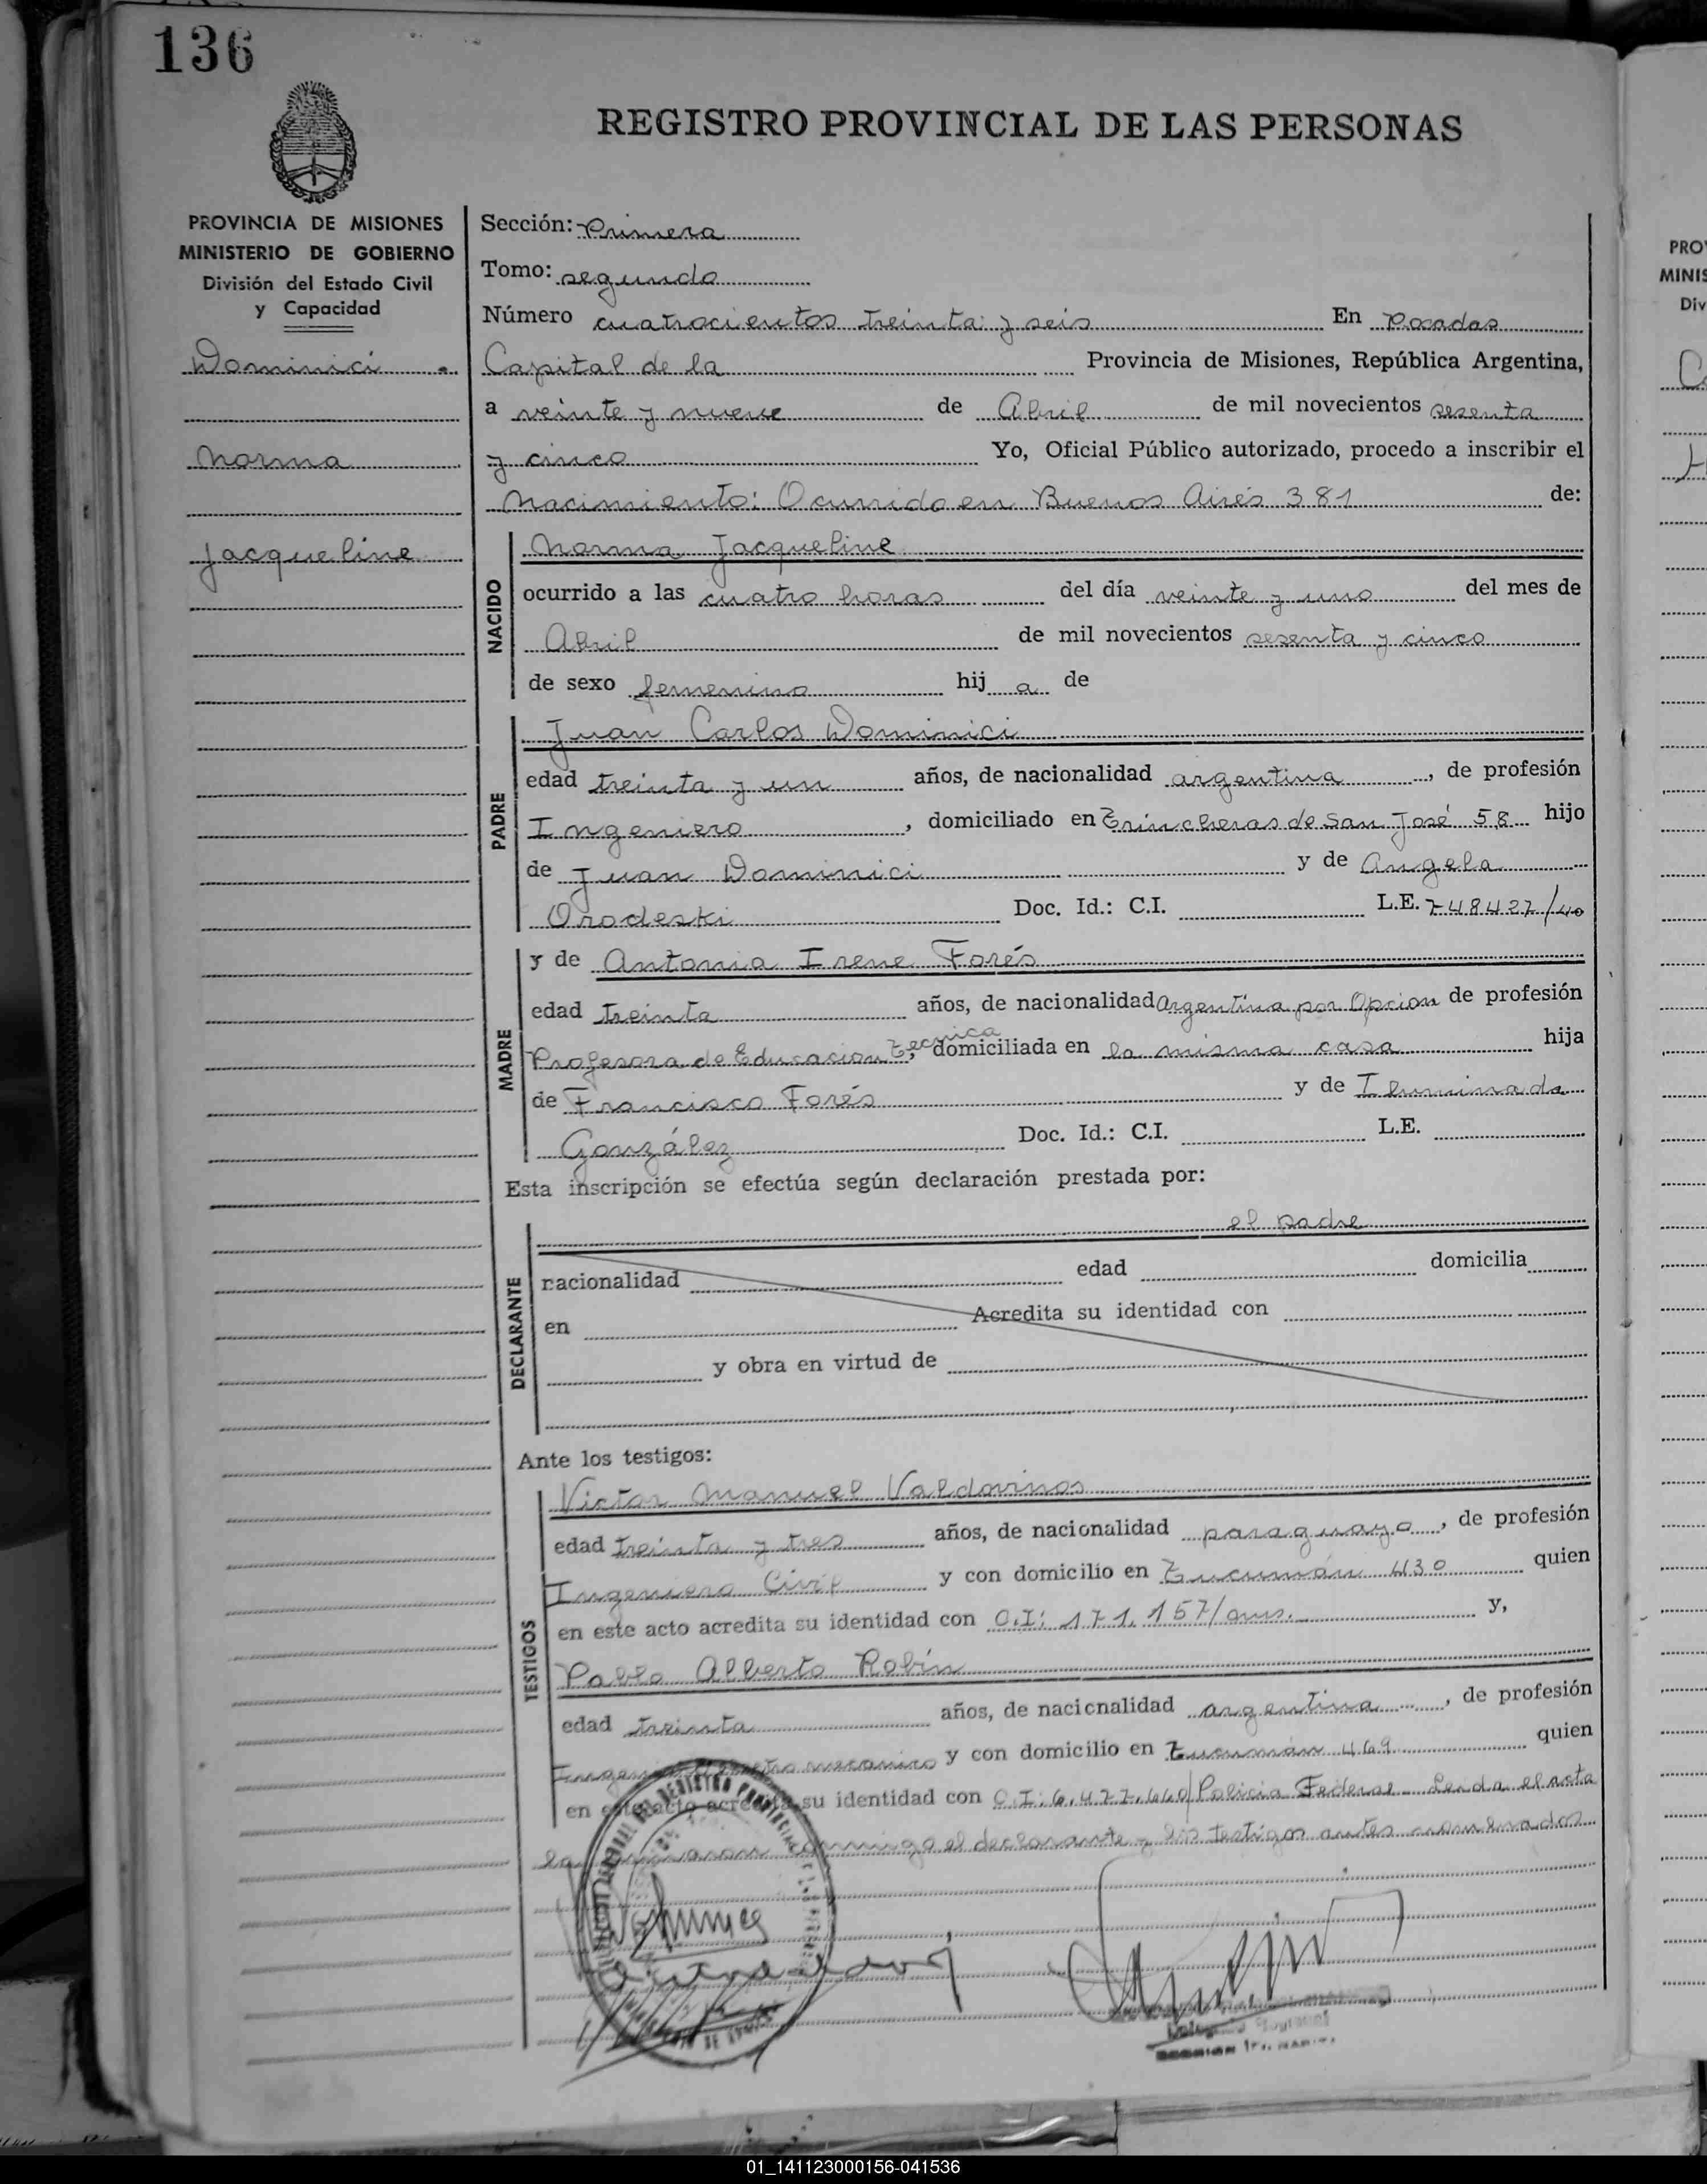 136
REGISTRO PROVINCIAL DE LAS PERSONAS
PROVINCIA DE MISIONES
MINISTERIO DE GOBIERNO
División del Estado Civil
y Capacidad
Dominici
Norma
Jacqueline
Sección: Primera
Tomo: segundo
Número cuatrocientos treinta y seis En Posadas
Capital de la Provincia de Misiones, República Argentina,
a veinte y nueve de Abril de mil novecientos sesenta
y cinco Yo, Oficial Público autorizado, procedo a inscribir el
Nacimiento: Ocurrido en Buenos Aires 381 de:
NACIDO
Norma Jacqueline
ocurrido a las cuatro horas del día veinte y uno del mes de
Abril de mil novecientos sesenta y cinco
de sexo femenino hij a de
PADRE
Juan Carlos Dominici
edad treinta y un años, de nacionalidad argentina, de profesión
Ingeniero, domiciliado en Trincheras de San José 58 hijo
de Juan Dominici y de Angela
Orodeski Doc. Id.: C.I. L.E. 748427/40
MADRE
y de Antonia Irene Forés
edad treinta años, de nacionalidad Argentina por Opcion de profesión
Profesora de Educacion Tecnica, domiciliada en la misma casa hija
de Francisco Forés y de Iluminada
González Doc. Id.: C.I. L.E.
Esta inscripción se efectúa según declaración prestada por:
DECLARANTE
el padre
nacionalidad edad domicilia
en Acredita su identidad con
y obra en virtud de
Ante los testigos:
TESTIGOS
Victor Manuel Valdovinos
edad treinta y tres años, de nacionalidad paraguayo, de profesión
Ingeniero Civil y con domicilio en Tucumán 430 quien
en este acto acredita su identidad con C.I: 171.157/ y,
Pablo Alberto Robín
edad treinta años, de nacicnalidad argentina, de profesión
mecanico y con domicilio en Tucumán 469 quien
en este acto acredita su identidad con C.I: 6.477.660/Policia Federal Leida el acta
la conmigo el declarante y los testigos antes nombrados
PRO
MINIS
Div
01_141123000156-041536